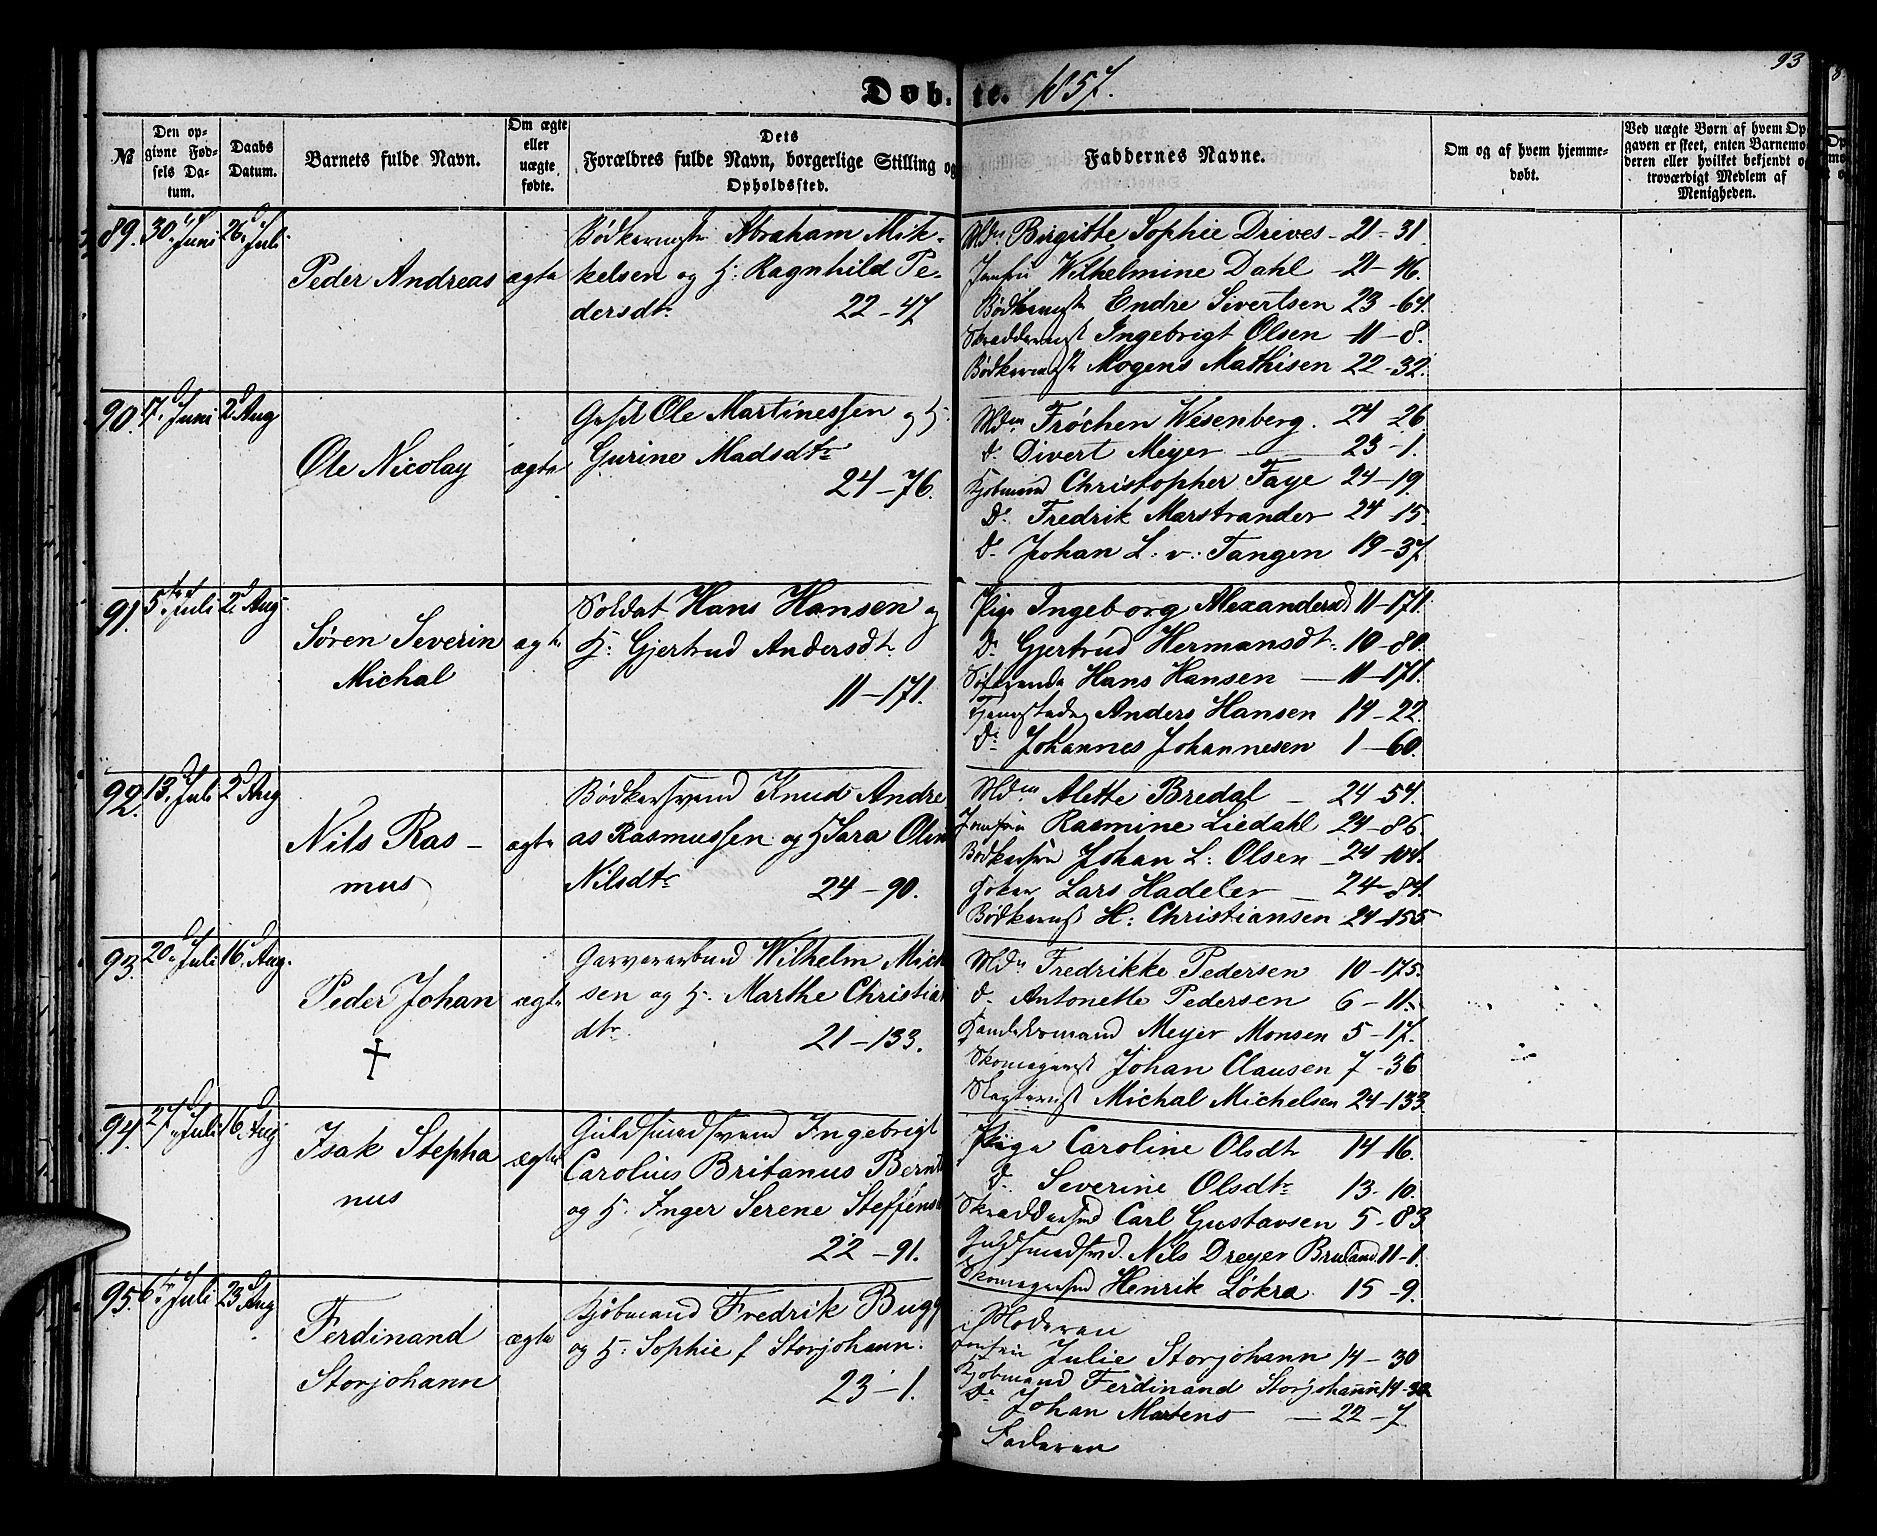 93
Døbte. 1857.
№
Den opgivne Fødsels Datum.
Daabs Datum.
Barnets fulde Navn.
Om ægte eller uægte fødte.
Dets Forældres fulde Navn, borgerlige Stilling og Opholdssted.
Faddernes Navne.
Om og af hvem hjemmedøbt.
Ved uægte Børn af hvem Opgaven er skeet, enten Barnemoderen eller hvilket bekjendt og troværdigt Medlem af Menigheden.
89. 30. Juni 26. Juli
Peder Andreas ægte
Bødkermstr Abraham Mik-
kelsen og H: Ragnhild Pe-
dersdtr 22-47
Mdm Birgitte Sophie Dreves - 21-31.
Jomfru Wilhelmine Dahl - 21-46.
Bødkermstr Endre Sivertsen 23-64.
Skreddermst Ingebrigt Olsen 11-8.
Bødkermstr Mogens Mathisen 22-32.
90. 7. Juni 2. Aug
Ole Nicolay ægte
Ole Martinessen og H:
Gurine Madsdtr
24-76.
Mdm Frøchen Wesenberg. 24-26.
d. Divert Meyer 23-1.
Kjøbmand Christopher Faye 24-19.
D. Fredrik Marstrander 24-15.
d. Johan L. v. Tangen 19-37.
91. 5. Juli 2. Aug
Søren Severin ægte
Michal
Soldat Hans Hansen og
H: Gjertrud Andersdtr
11-171.
Pige Ingeborg Alexandersd 11-171.
D. Gjertrud Hermansdtr 10-80.
Søfarende Hans Hansen - 11-171.
Anders Hansen 14-22.
d. Johannes Johannesen 1-60.
92. 13. Juli 2. Aug
Nils Ras- ægte
mus
Bødkersvend Knud Andre
as Rasmussen og H Sara Olsen
Nilsdtr 24-90.
Mdm Alette Bredal - 24-54.
Jomfru Rasmine Liedahl 24-86.
Bødkersv Johan L: Olsen - 24-104.
Lars Hadeler - 24-84.
Bødkermst H: Christiansen 24-155
93. 20. Juli 16. Aug.
Peder Johan ægte
†
Garverarbeid Wilhelm Mich
sen og H: Marthe Christian
dtr 21-133.
Mdm Fredrikke Pedersen 10-175.
d. Antonette Pedersen 6-11.
Handelsmand Meyer Monsen 5-17.
Skomagermst Johan Clausen 7-36
Slagtermst Michal Michelsen 24-133
94. 27. Juli 16. Aug
Isak Stepha ægte
nus
Guldsmedsvend Ingebrigt
Carolius Britanus Bernt
og H: Inger Serene Steffens
22-91.
Pige Caroline Olsdtr 14-16.
d. Severine Olsdtr 13-10.
Skreddersvd Carl Gustavsen 5-83.
Guldsmedsvd. Nils Dreyer Bruland 11-1.
Skomagersvd Henrik Løkra. 15-9.
95. 6. Juli 23 Aug
Ferdinand ægte
Storjohann
Kjøbmand Fredrik Bugg
og H: Sophie f Storjohann.
23-1.
Moderen
Jomfru Julie Storjohann 14-30
Kjøbmand Ferdinand Storjohann 14-30
D. Johan Martens - 22-7
Faderen